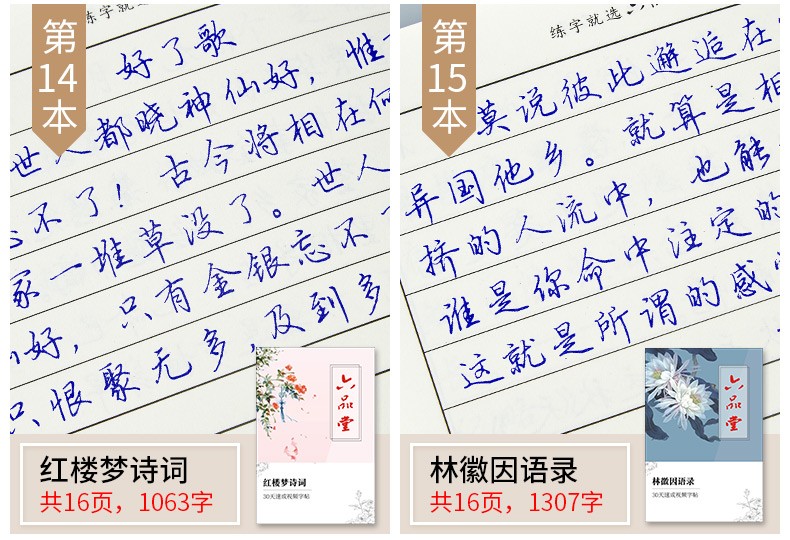 第
14
本
练字就
好了歌
世人都晓神仙好，惟
不了！古今将相在何
冢一堆草没了。世人
好，只有金银忘不一
只恨聚无多，及到多
六品堂
红楼梦诗词
30天速成视频字帖
红楼梦诗词
共16页，1063字
第
15
本
练字就选
莫说彼此邂逅在
异国他乡。就算是相
挤的人流中，也能
谁是你命中注定的
这就是所谓的感
六品堂
林徽因语录
30天速成视频字帖
林徽因语录
共16页，1307字